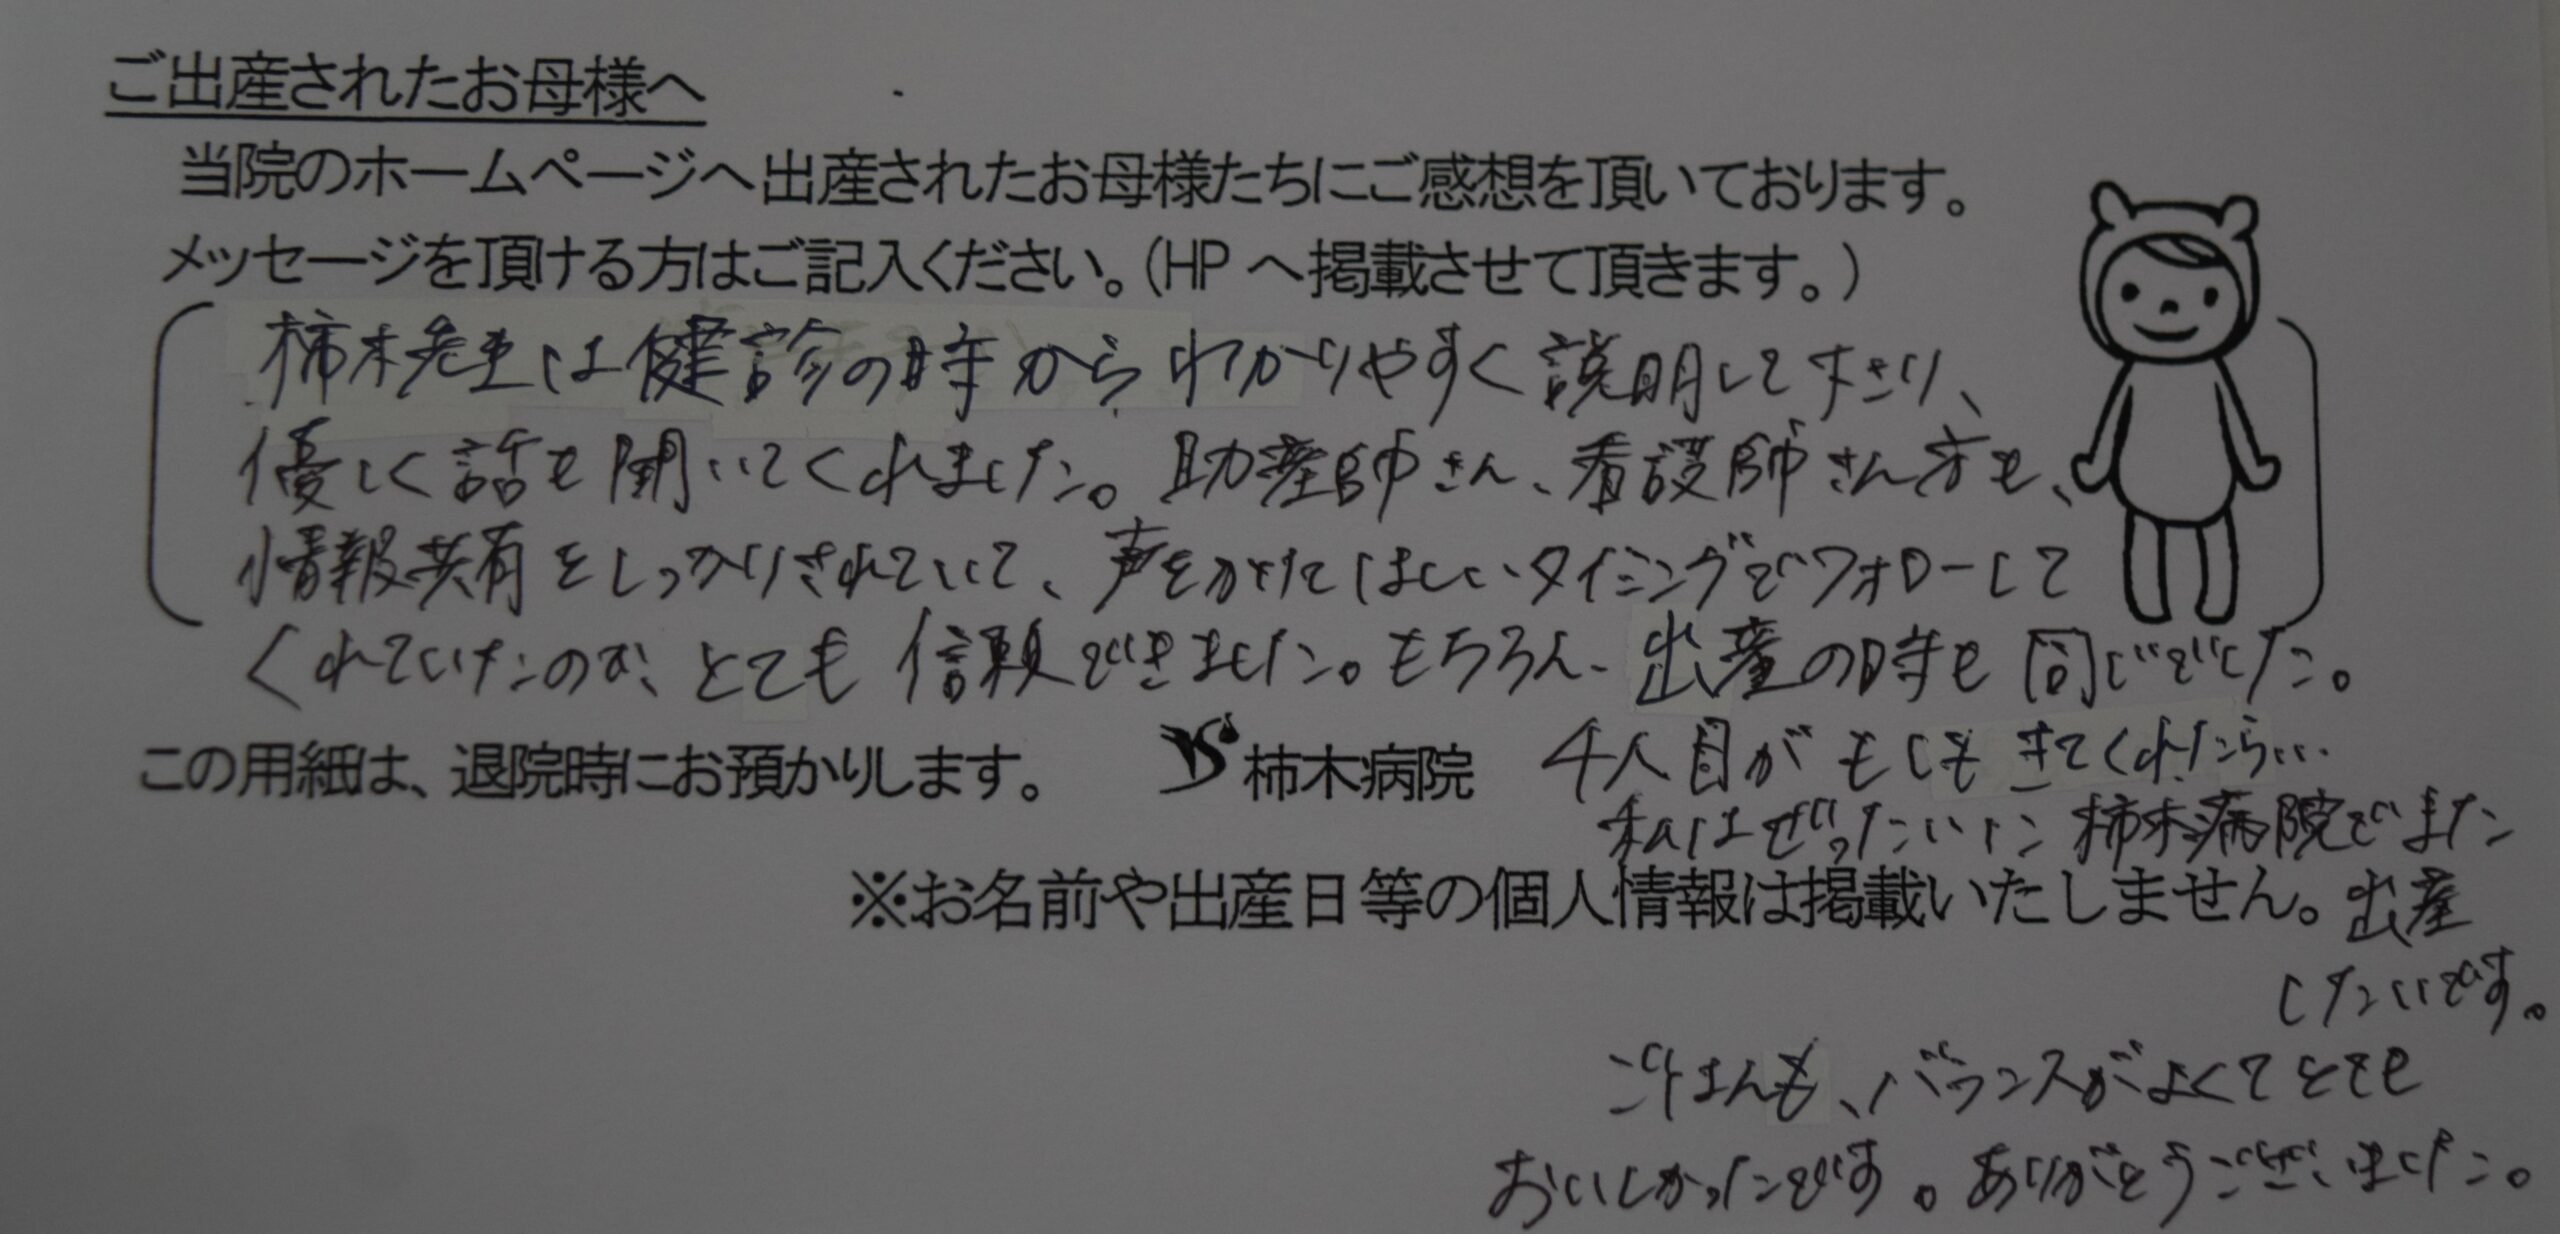 ご出産されたお母様へ
当院のホームページへ出産されたお母様たちにご感想を頂いております。
メッセージを頂ける方はご記入ください。(HPへ掲載させて頂きます。)
柿木先生は健診の時からわかりやすく説明して下さり、
優しく話も聞いてくれました。助産師さん、看護師さん方も、
情報共有をしっかりされていて、声をかけてほしいタイミングでフォローして
くれていたのが、とても信頼できました。もちろん、出産の時も同じでした。
この用紙は、退院時にお預かりします。 柿木病院 4人目がもしもきてくれたら…
私はぜったいに柿木病院でまた
※お名前や出産日等の個人情報は掲載いたしません。 出産
したいです。
ごはんも、バランスがよくてとても
おいしかったです。ありがとうございました。